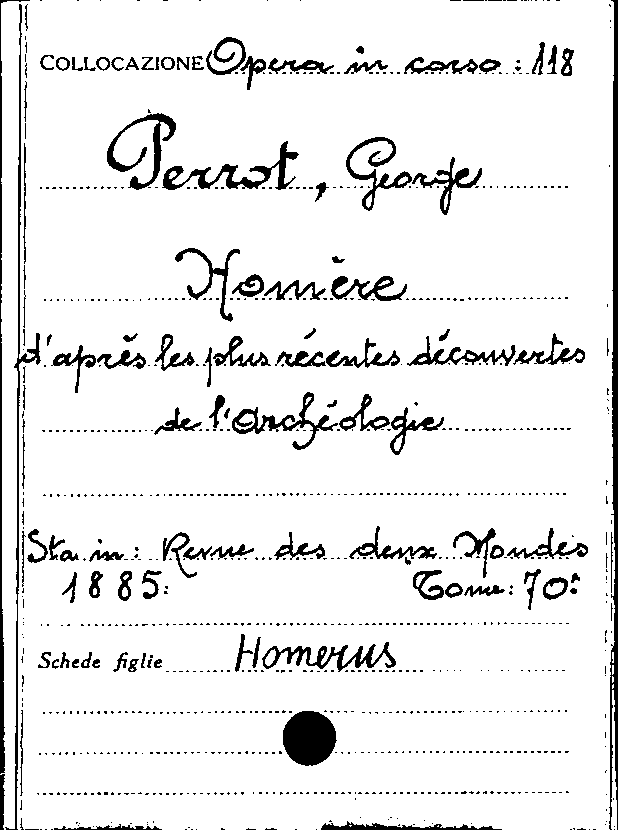 COLLOCAZIONE Opera in corso : 118
Perrot, George
Homère
d'après les plus récentes découvertes
de l'Archéologie
Sta in : Revue des deux Mondes
1885: Tome : 70:
Schede figlie Homerus